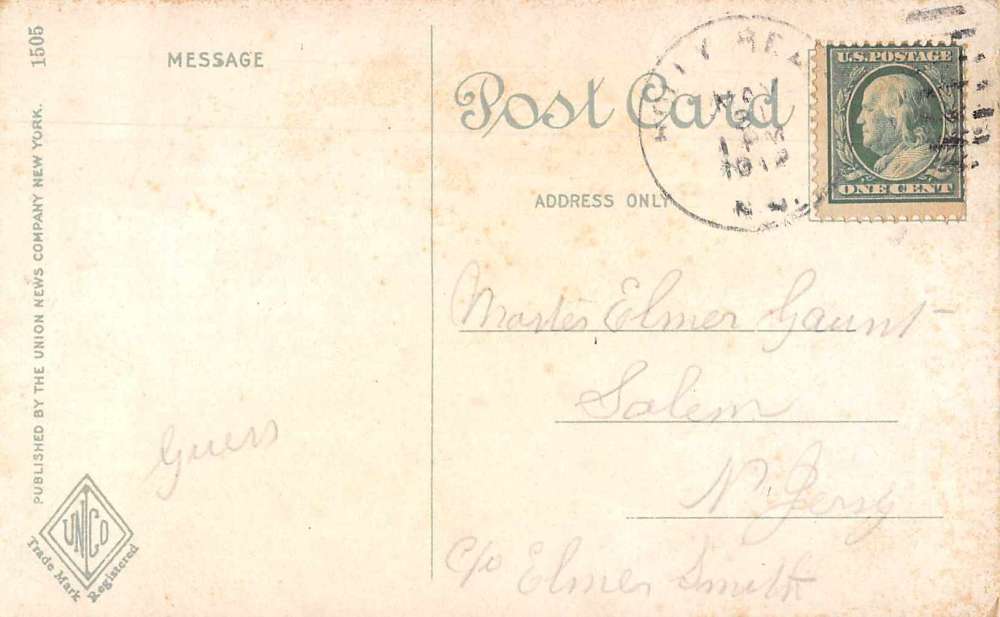 1505
PUBLISHED BY THE UNION NEWS COMPANY NEW YORK.
UNCO
Trade Mark
Registered
MESSAGE
Guess
Post Card
ADDRESS ONLY
1 PM
1912
U.S. POSTAGE
ONE CENT
Master Elmer Gaunt
Salem
N. Jersy
c/o Elmer Smith